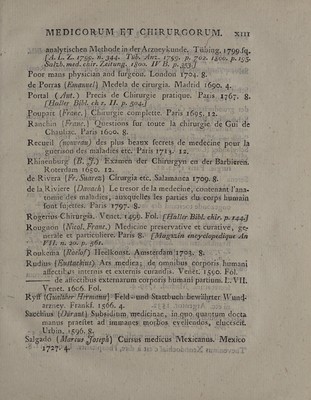 MEDICORUM ET CHIRURGORUM. XIII
analytischen Methode in der Arzneykunde. Tübing. 1799. sq.
(A. L. Z. 1799. n. 344. Tüb. Anz. 1799. p. 702. 1800. p. 195.
Salzb. med. chir. Zeitung. 1800. IV B. p. 353.)
Poor mans physician and surgeon. London 1704. 8.
de Porras (Emanuel) Medela de cirurgia. Madrid 1690. 4.
Portal (Ant.) Precis de Chirurgie pratique. Paris 1767. 8.
(Haller Bibl. ch. t. II. p. 504.)
Poupart (Franc.) Chirurgie complette. Paris 1695. 12.
Ranchin (Franc.) Questions sur toute la chirurgie de Gui de
Chauliac. Paris 1600. 8.
Recueil (nouveau) des plus beaux secrets de medecine pour la
guerison des maladies etc. Paris 1713. 12.
Rhinenburg (B. J.) Examen der Chirurgyn en der Barbieren.
Rotterdam 1650. 12.
de Rivera (Fr. Suarez) Cirurgia etc. Salamanca 1709. 8.
de la Riviere (Davach) Le tresor de la medecine, contenant l'ana-
tomie des maladies, auxquelles les parties du corps humain
sont sujettes. Paris 1797. 8.
Rogerius Chirurgia. Venet. 1499. Fol. (Haller Bibl. chir. p. 144.)
Rougnon (Nicol. Franc.) Medicine preservative et curative, ge-
nerale et particuliere. Paris 8. (Magazin encyclopedique An
VII. n. 20. p. 561.
Roukema (Roelof) Heilkonst. Amsterdam 1702. 8.
Rudius (Eustachius) Ars medica; de omnibus corporis humani
affectibus internis et externis curandis. Venet. 1590. Fol.
de affectibus externarum corporis humani partium L. VII.
Venet. 1606. Fol.
Ryff (Gualther Hermann) Feld- und Stattbuch bewährter Wund-
arzney. Frankf. 1566. 4.
Sacchius (Durant) Subsidium medicinae, in quo quantum docta
manus praestet ad immanes morbos evellendos, elucescit.
Urbin. 1596. 8.
Salgado (Marcus Joseph) Cursus medicus Mexicanus. Mexico
1727. 4.